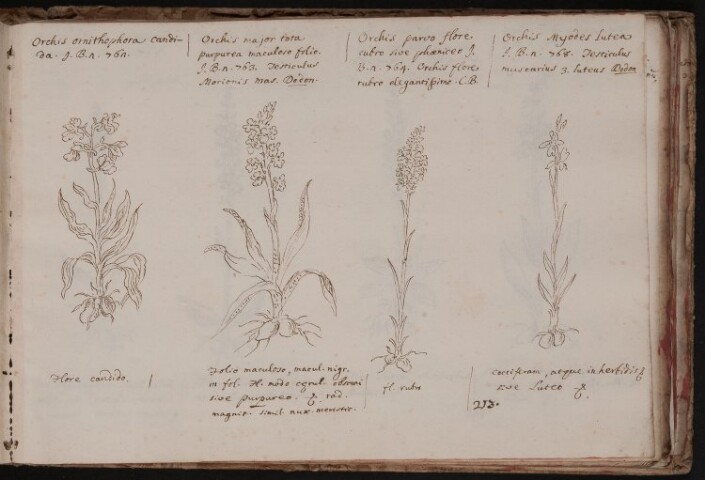 Orchis ornithophora candi-
da. J. B. n. 761.
Orchis major tota
purpurea maculoso folio
J. B. n. 763. Testiculus
Morionis mas. Dodon.
Orchis parvo flore
rubro sive phœniceo J.
B. n. 764. Orchis flore
rubro elegantissimo. C.B.
Orchis Myodes lutea
J. B. n. 768. Testiculus
muscarius 3. luteus Dodon
Flore candido.
Folio maculoso, macul. nigr.
in fol. Fl. modo
sive purpureo. rad.
magnit. simil. nux.
fl. rubro
atque in
sive Luteo
253.